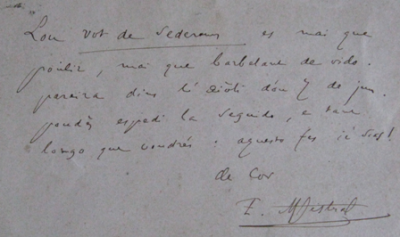 Lou vot de Sederoun es mai que
poulit, mai que barbelant de vido.
pareira dins li dóu 7 de jun.
poudès espedi la seguido, e tant
longo que voudrés. aquesto fes
de Cor
F. Mistral